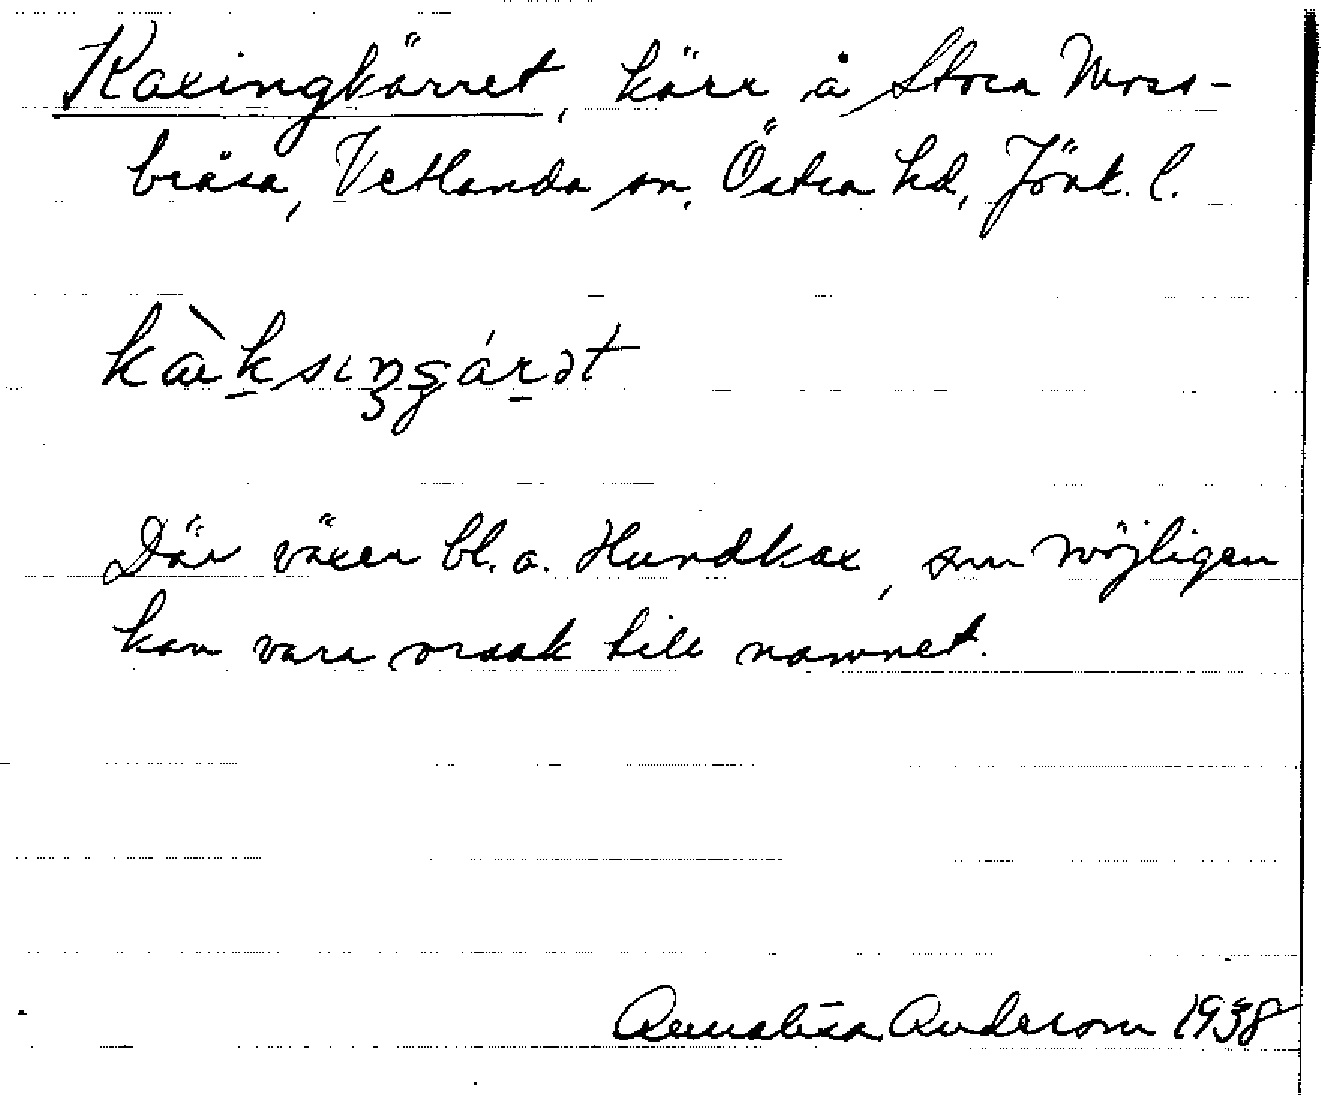 Kaxingkärret, kärr å Stora Moss-
bråsa, Vetlanda sn, Östra hd, Jönk. l.
Där växer bl. a. Hundkax, som möjligen
kan vara orsak till namnet.
Annalisa Anderson 1938